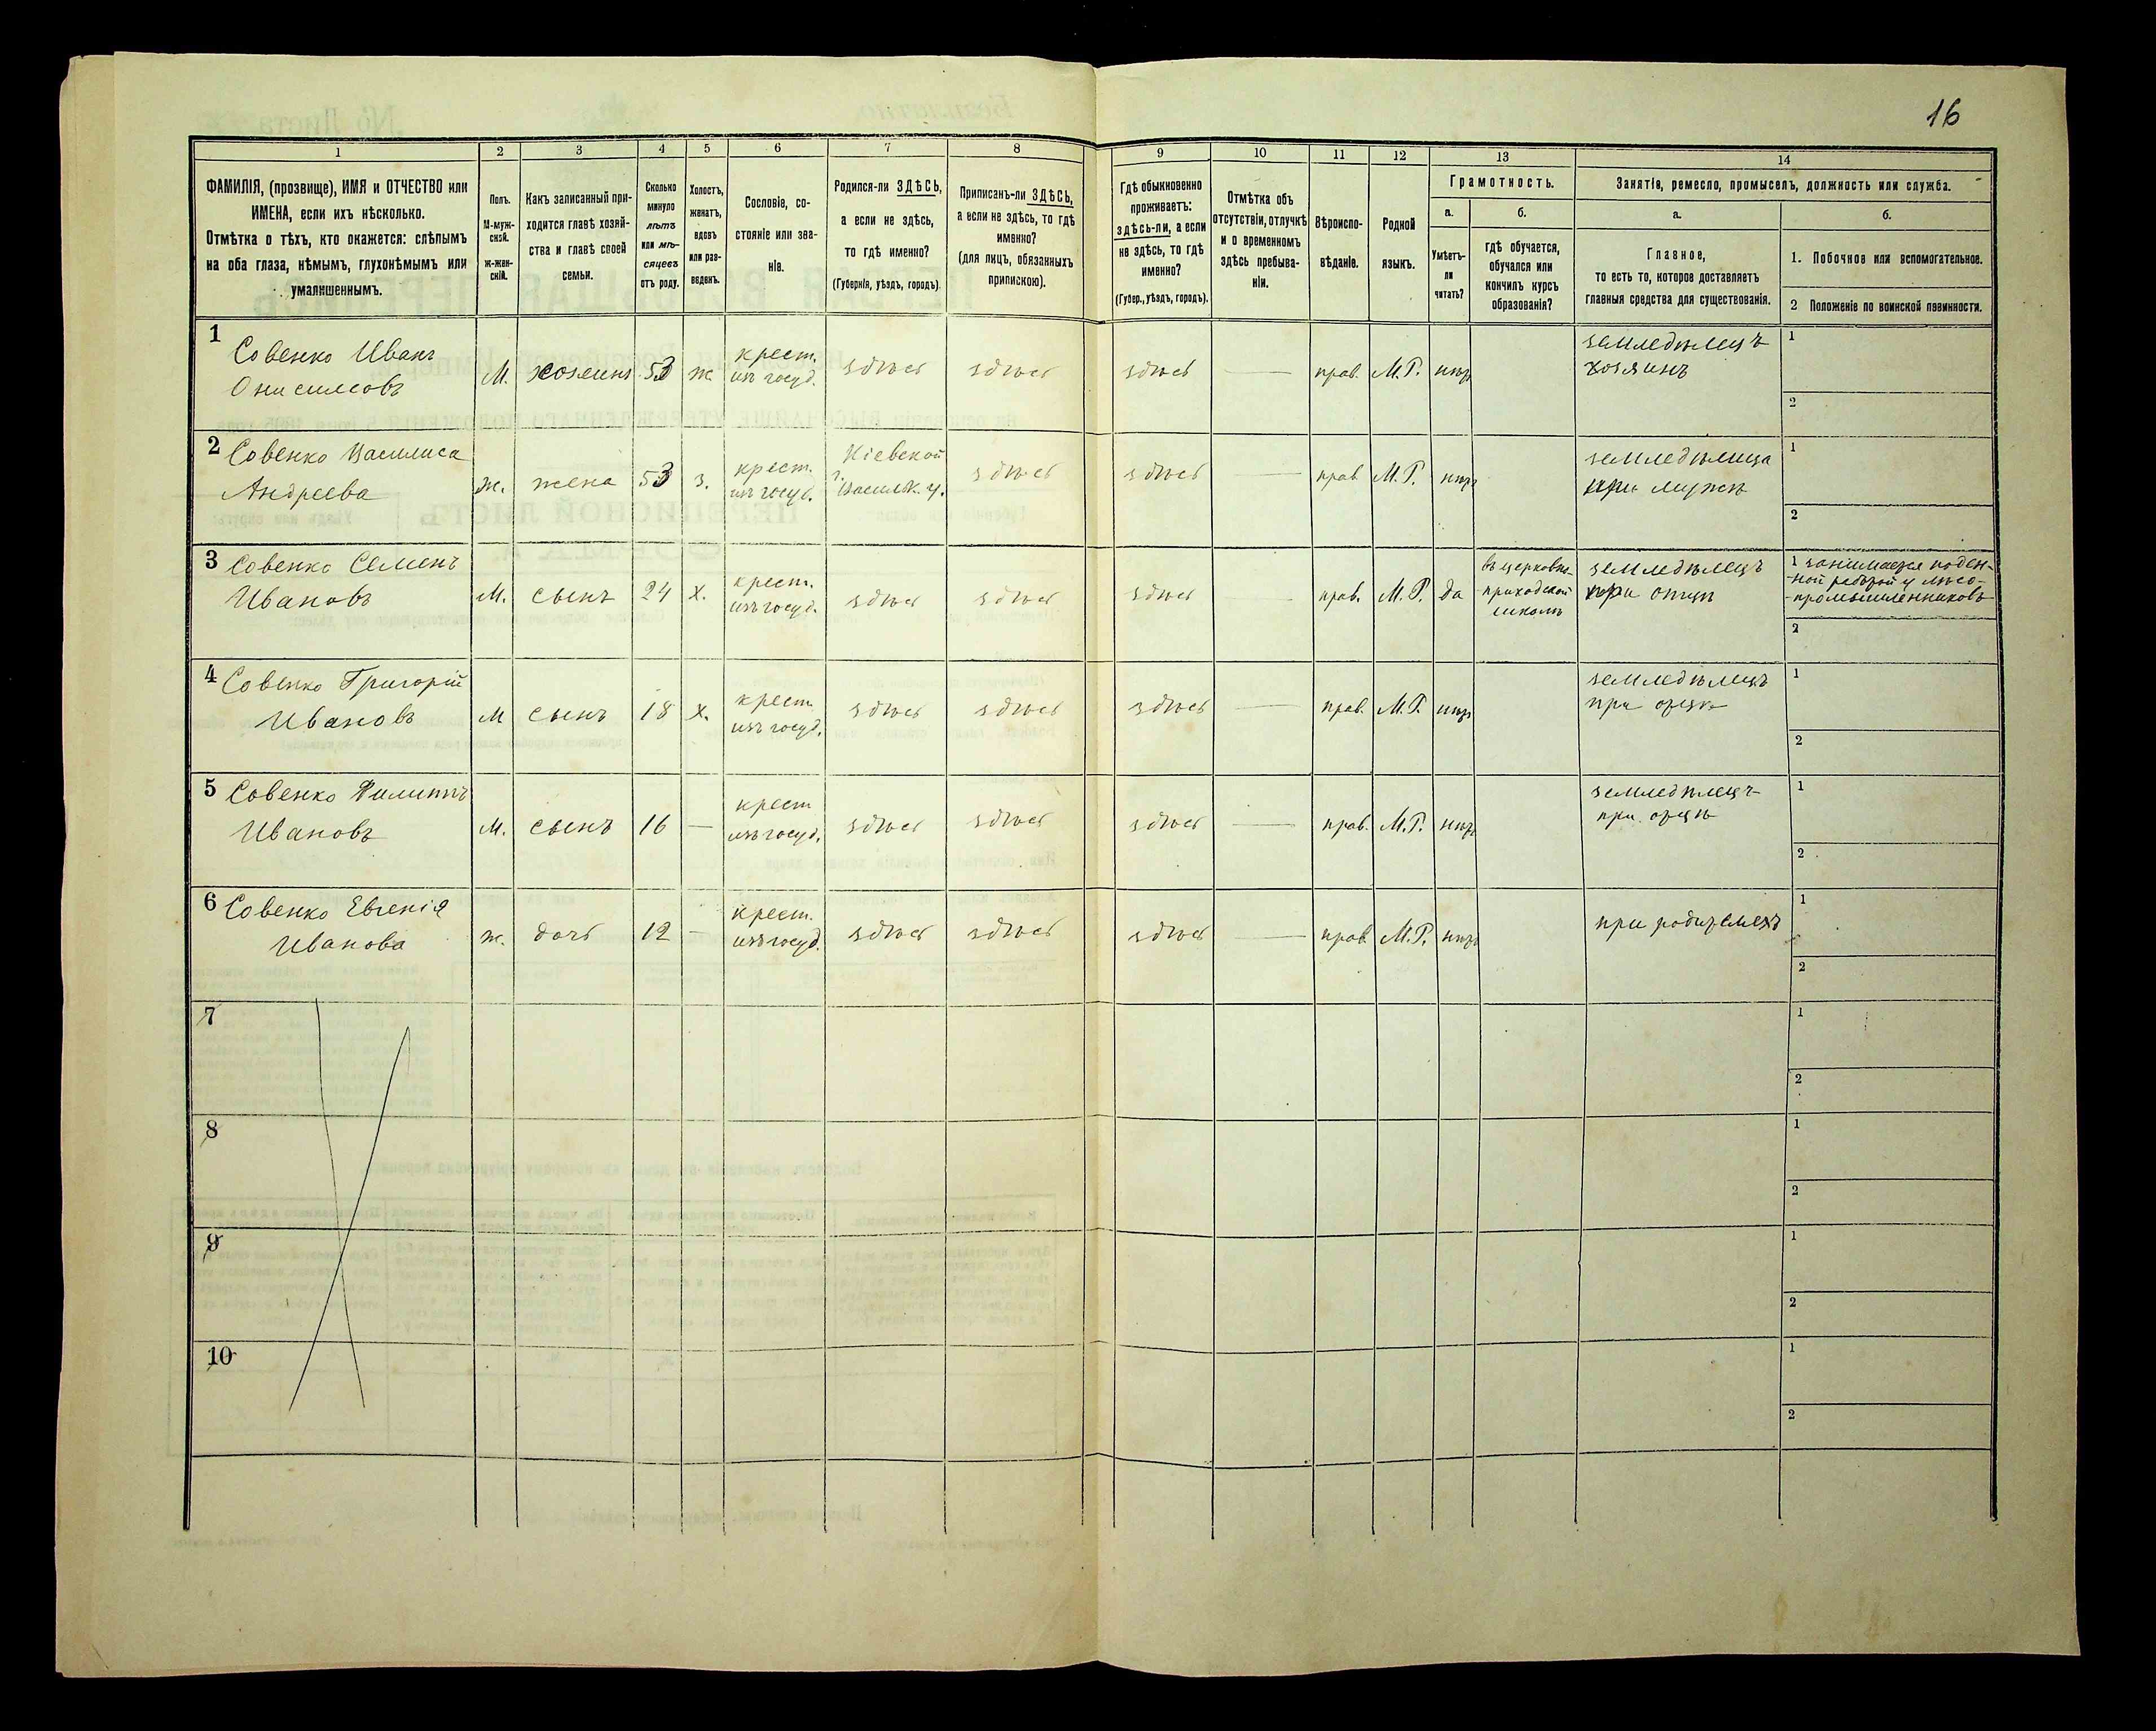 16
1
2
3
4
5
6
7
8
9
10
11
12
13
14
ФАМИЛІЯ, (прозвище), ИМЯ и ОТЧЕСТВО или
ИМЕНА, если ихъ нѣсколько.
Отмѣтка о тѣхъ, кто окажется: слѣпымъ
на оба глаза, нѣмымъ, глухонѣмымъ или
умалишеннымъ.
Полъ.
М-муж-
ской.
Ж-жен-
скій.
Какъ записанный при-
ходится главѣ хозяй-
ства и главѣ своей
семьи.
Сколько
минуло
лѣтъ
или мѣ-
сяцевъ
отъ роду.
Холостъ,
женатъ,
вдовъ
или раз-
веденъ.
Сословіе, со-
стояніе или зва-
ніе.
Родился-ли ЗДѢСЬ,
а если не здѣсь,
то гдѣ именно?
(Губернія, уѣздъ, городъ).
Приписанъ-ли ЗДѢСЬ,
а если не здѣсь, то гдѣ
именно?
(для лицъ, обязанныхъ
припиской).
Гдѣ обыкновенно
проживаетъ:
здѣсь-ли, а если
не здѣсь, то гдѣ
именно?
(Губер., уѣздъ, городъ).
Отмѣтка объ
отсутствіи, отлучкѣ
и о временномъ
здѣсь пребыва-
ніи.
Вѣроиспо-
вѣданіе.
Родной
языкъ.
Грамотность.
а.
Умѣетъ-
ли
читать?
б.
гдѣ обучается,
обучался или
кончилъ курсъ
образованія?
Занятіе, ремесло, промыселъ, должность или служба.
а.
Главное,
то есть то, которое доставляетъ
главныя средства для существованія.
б.
1. Побочное или вспомогательное.
2 Положеніе по воинской повинности.
1
Совенко Иванъ
Онисимовъ
М. хозяинъ 53 ж
крест.
изъ госуд.
здѣсь здѣсь здѣсь — прав. М.Р. нѣтъ
земледѣлецъ
хозяинъ
1
2
2
Совенко Василиса
Андреева
ж. жена 53 з.
крест.
изъ госуд.
Кіевской
г. Васильк. у.
здѣсь здѣсь — прав. М.Р. нѣтъ
земледѣлица
при мужѣ
1
2
3
Совенко Семенъ
Ивановъ
М. сынъ 24 х.
крест.
изъ госуд.
здѣсь здѣсь здѣсь — прав. М.Р. да
въ церковно-
приходской
школѣ
земледѣлецъ
при отцѣ
1 занимается поден-
ной работой у лѣсо-
промышленниковъ
2
4
Совенко Григорій
Ивановъ
М сынъ 18 х.
крест.
изъ госуд.
здѣсь здѣсь здѣсь — прав. М.Р. нѣтъ
земледѣлецъ
при отцѣ
1
2
5
Совенко Филиппъ
Ивановъ
М. сынъ 16 —
крест
изъ госуд.
здѣсь здѣсь здѣсь — прав. М.Р. нѣтъ
земледѣлецъ
при отцѣ
1
2
6
Совенко Евгенія
Иванова
ж. дочь 12 —
крест.
изъ госуд.
здѣсь здѣсь здѣсь — прав. М.Р. нѣтъ
при родителяхъ
1
2
7
1
2
8
1
2
9
1
2
10
1
2